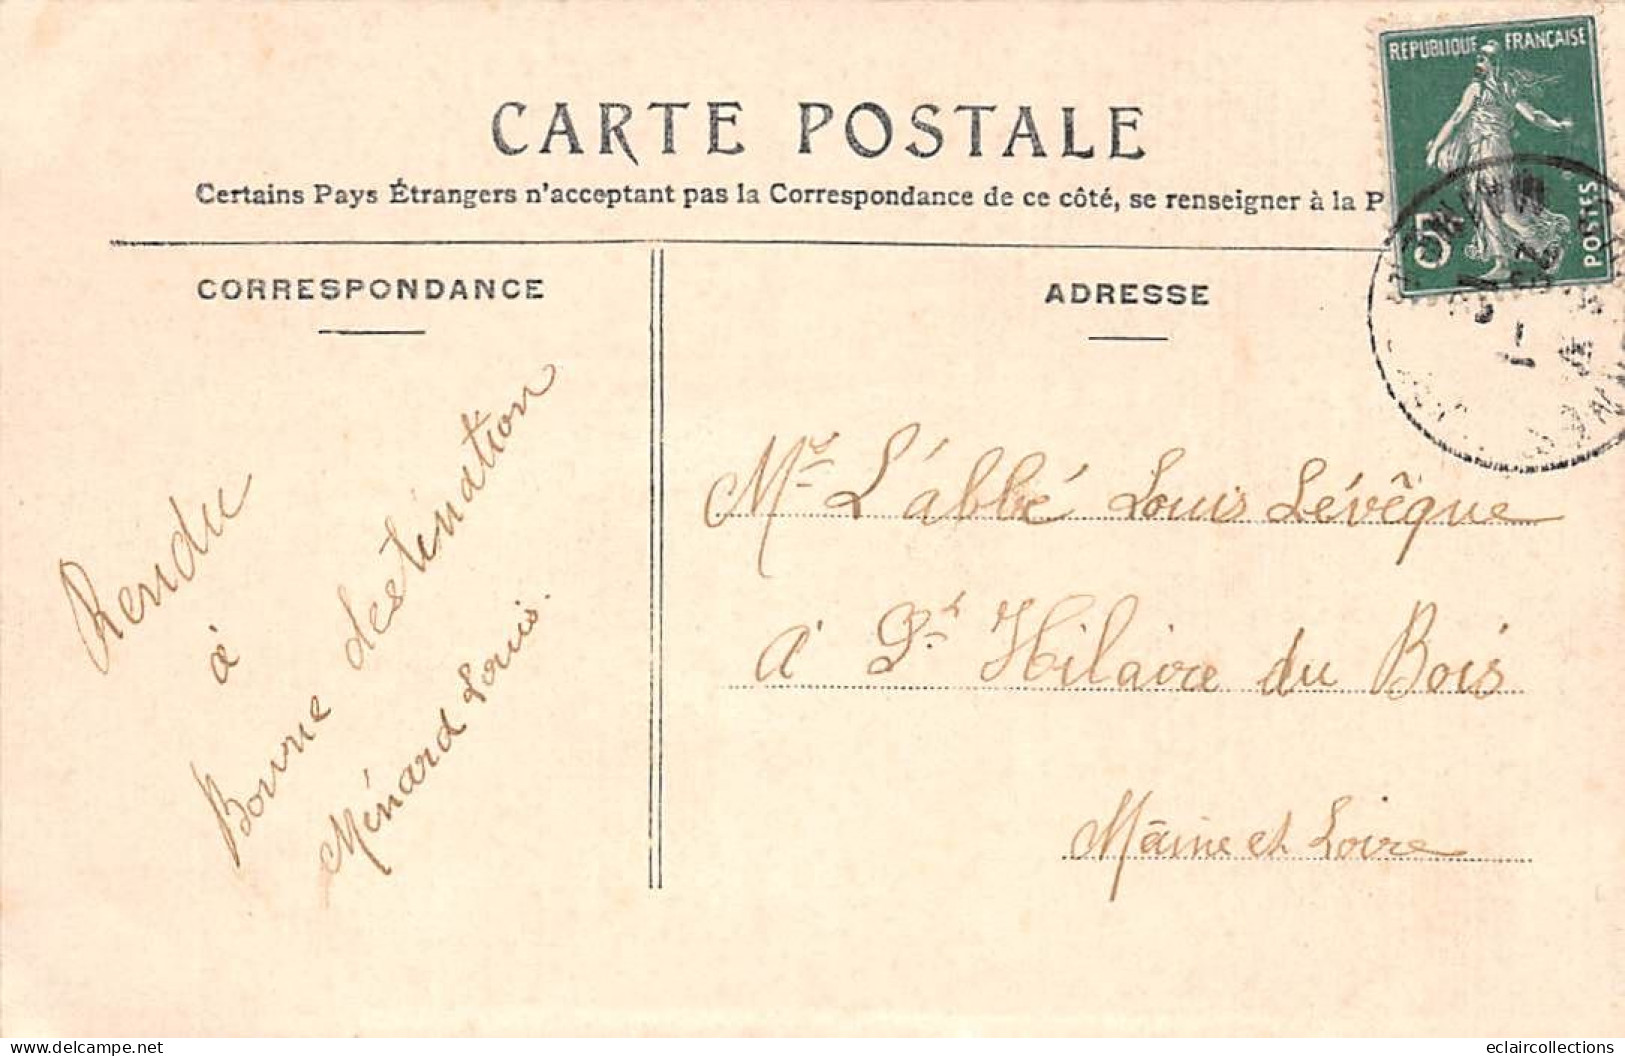 CARTE POSTALE
Certains Pays Étrangers n'acceptant pas la Correspondance de ce côté, se renseigner à la P
REPUBLIQUE FRANÇAISE
5
POSTES
CORRESPONDANCE
Rendu
à
Bonne destination
Ménard Louis.
ADRESSE
Mr L'abbé Louis Lévêque
A St Hilaire du Bois
Maine et Loire
delcampe.net
eclaircollections